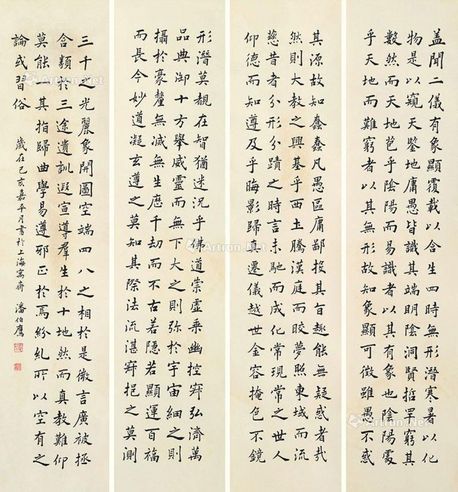 蓋聞二儀有象顯覆載以含生四時無形潛寒暑以化
物是以窺天鑒地庸愚皆識其端明陰洞賢哲罕窮其
數然而天地苞乎陰陽而易識者以其有象也陰陽處
乎天地而難窮者以其無形故知象顯可徵雖愚不惑
其源故知蠢蠢凡愚區區庸鄙投其旨趣能無疑惑者哉
然則大教之興基乎西土騰漢庭而皎夢照東域而流
慈昔者分形分蹟之時言未馳而成化當常現常之世人
仰德而知遵及乎晦影歸真遷儀越世金容掩色不鏡
形潛莫覩在智猶迷況乎佛道崇虛乘幽控寂弘濟萬
品典御十方舉威靈而無下大之則彌於宇宙細之則
攝於豪釐無滅無生歷千劫而不古若隱若顯運百福
而長今妙道凝玄遵之莫知其際法流湛寂挹之莫測
三千之光麗象開圖空端四八之相於是微言廣被拯
含類於三途遺訓遐宣導羣生於十地然而真教難仰
莫能一其指歸曲學易遵邪正於焉紛糺所以空有之
論或習俗 歲在己亥嘉平月書於上海寓齋 潘伯鷹